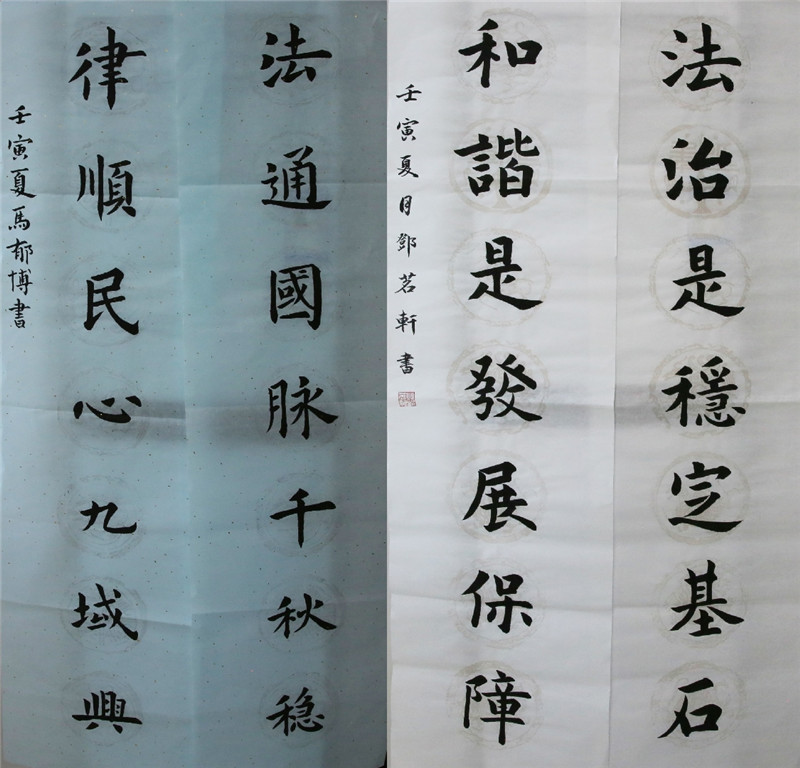 法治是穩定基石
和諧是發展保障
壬寅夏月鄧茗軒書
法通國脉千秋稳
律順民心九域興
壬寅夏馬郁博書